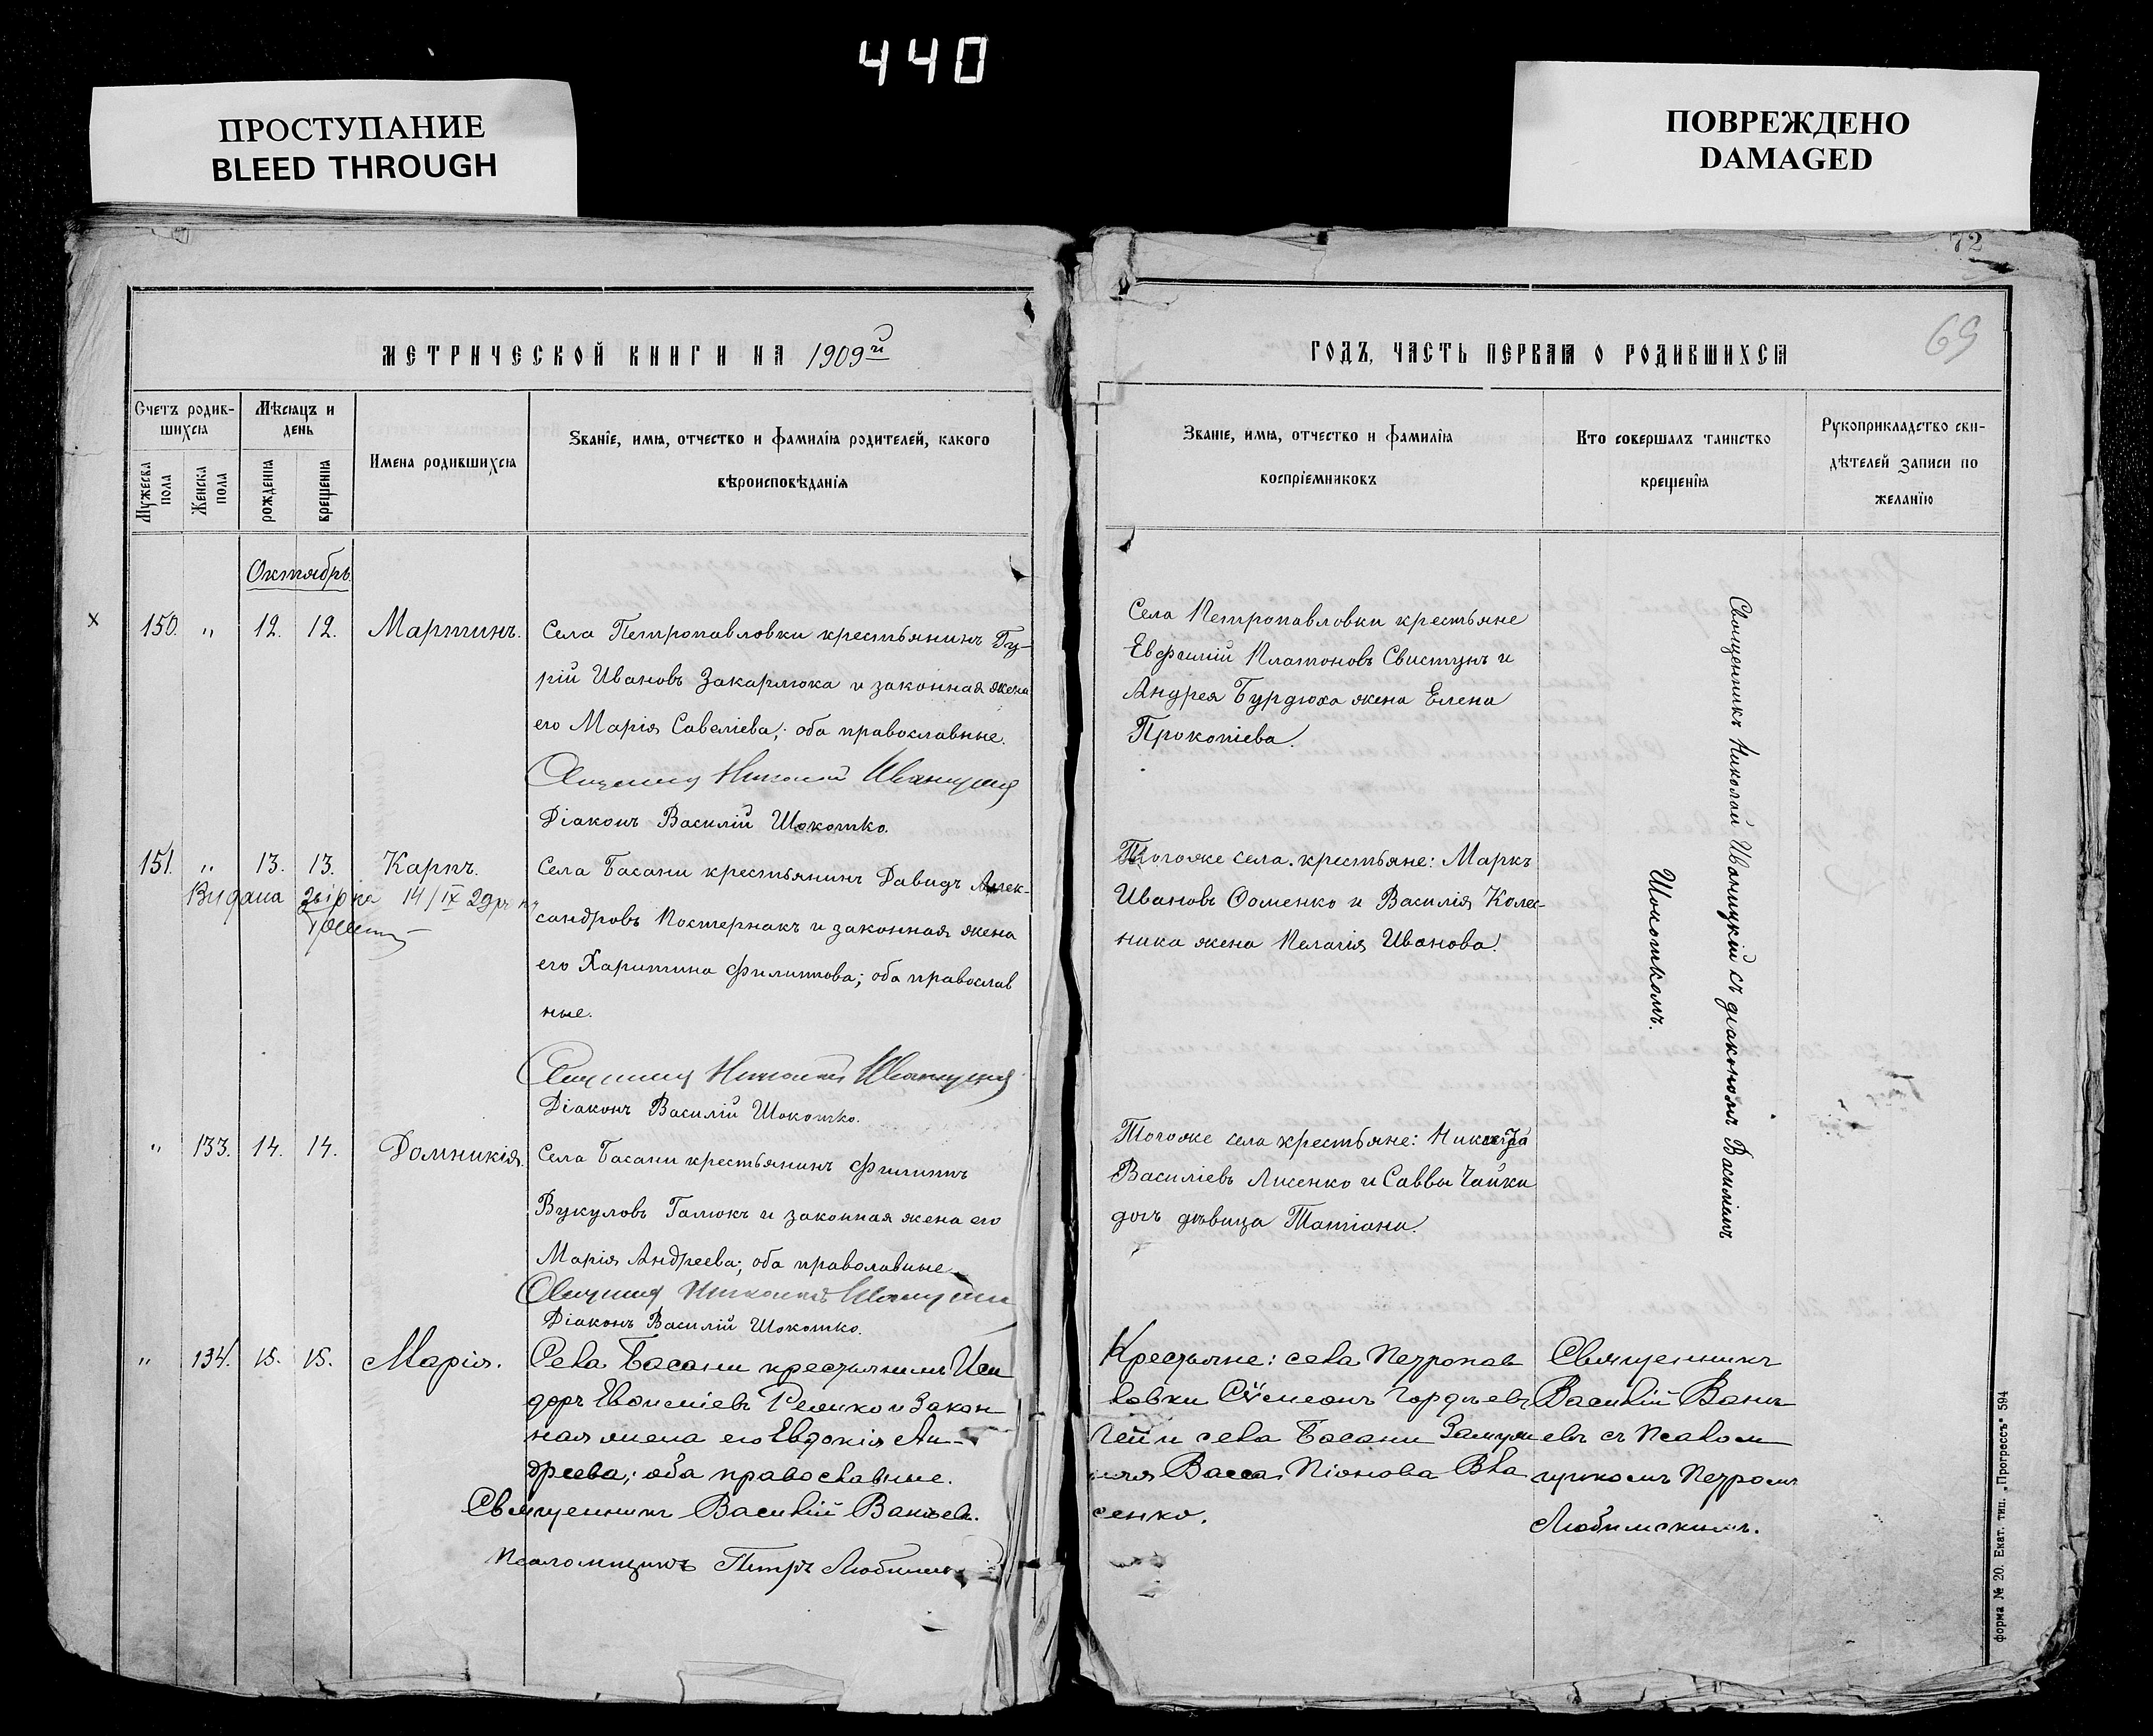 440
ПРОСТУПАНИЕ
BLEED THROUGH
ПОВРЕЖДЕНО
DAMAGED
72
69
МЕТРИЧЕСКОЙ КНИГИ НА 1909й
Счетъ родив-
шихся
Мѣсяцъ и
день
Мужеска
пола
Женска
пола
рожденія
крещенія
Имена родившихся
Званіе, имя, отчество и фамилія родителей, какого
вѣроисповѣданія
Октябрь.
х 150. „ 12. 12. Мартинъ.
Села Петропавловки крестьянинъ Гу-
рій Ивановъ Закарлюка и законная жена
его Марія Савеліева; оба православные.
Николай
Діаконъ Василій Шокотко.
151. „ 13. 13. Карпъ.
Видана 14/IX
Села Басани крестьянинъ Давидъ Алек-
сандровъ Постернакъ и законная жена
его Харитина Филиппова; оба православ
ные.
Николай
Діаконъ Василій Шокотко.
„ 133. 14. 14. Домникія.
Села Басани крестьянинъ Филиппъ
Вукуловъ Галюкъ и законная жена его
Марія Андреева; оба праволавные
Николай
Діаконъ Василій Шокотко.
„ 134. 15. 15. Марія.
Села Басани крестьянинъ Иси
доръ Евфиміевъ и закон
ная жена его Евдокія Ан-
дреева; оба православные.
Священникъ Василій Ваньевъ.
Псаломщикъ Петръ
ГОДЪ, ЧАСТЬ ПЕРВАЯ О РОДИВШИХСЯ
Званіе, имя, отчество и фамилія
воспріемниковъ
Кто совершалъ таинство
крещенія
Рукоприкладство сви-
дѣтелей записи по
желанію
Села Петропавловки крестьяне
Евфимій Платоновъ Свистунъ и
Андрея Бурдюха жена Елена
Прокопіева.
Тогоже села крестьяне: Маркъ
Ивановъ Фоменко и Василія Колес-
ника жена Пелагія Иванова.
Тогоже села крестьяне:
Василіевъ Лисенко и Саввы Чайки
дочь дѣвица Татіана.
Крестьяне: села Петропав
ловки Сѵмеонъ Гордѣевъ
и села Басани
Васса Піонова Вла
сенко.
Священникъ Николай Иваницкій съ діакономъ Василіемъ
Шокоткомъ.
Священникъ
Василій Вань
евъ съ Псалом
щикомъ Петромъ
Любимскимъ.
форма № 20. Екат. тип. „Прогрессъ" 594